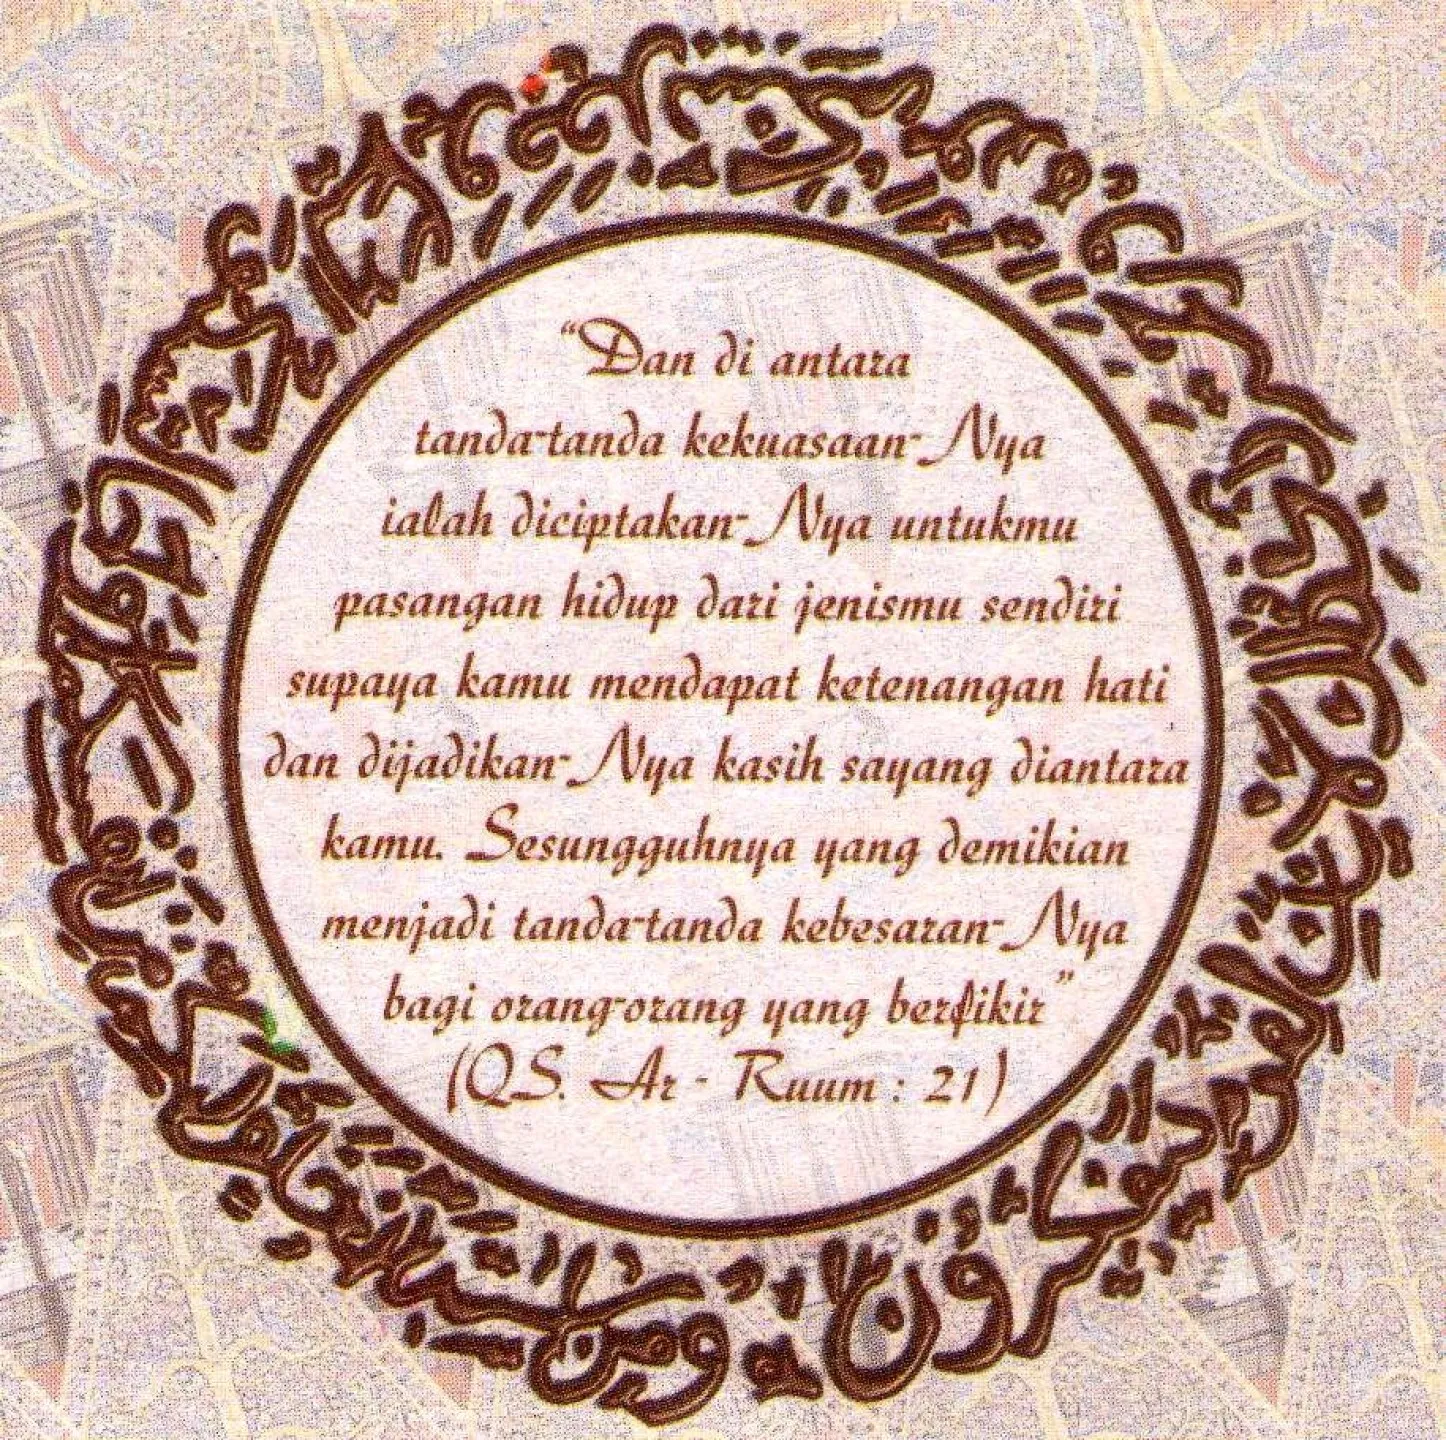 “Dan di antara
tanda-tanda kekuasaan-Nya
ialah diciptakan-Nya untukmu
pasangan hidup dari jenismu sendiri
supaya kamu mendapat ketenangan hati
dan dijadikan-Nya kasih sayang diantara
kamu. Sesungguhnya yang demikian
menjadi tanda-tanda kebesaran-Nya
bagi orang-orang yang berfikir”
(QS. Ar - Ruum : 21)
ومن آياته أن خلق لكم من أنفسكم أزواجا لتسكنوا إليها وجعل بينكم مودة ورحمة إن في ذلك لآيات لقوم يتفكرون